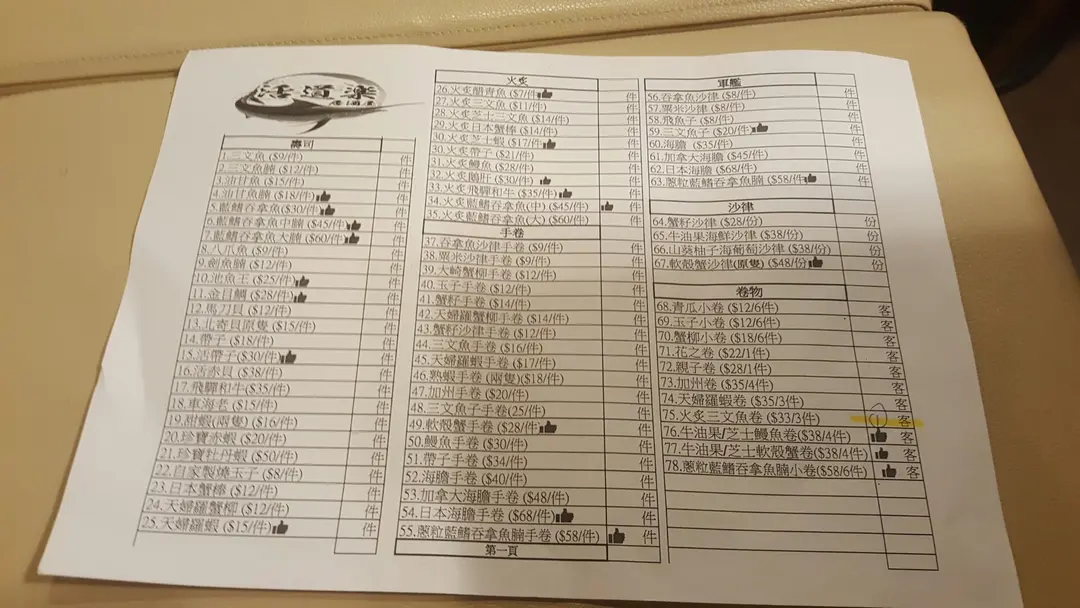 活道樂
居酒屋
壽司
1.三文魚 ($9/件) 件
2.三文魚腩 ($12/件) 件
3.油甘魚 ($15/件) 件
4.油甘魚腩 ($18/件) 件
5.藍鰭吞拿魚($30/件) 件
6.藍鰭吞拿魚中腩 ($45/件) 件
7.藍鰭吞拿魚大腩 ($60/件) 件
8.八爪魚 ($9/件) 件
9.劍魚腩 ($12/件) 件
10.池魚王 ($25/件) 件
11.金目鯛 ($28/件) 件
12.馬刀貝 ($12/件) 件
13.北寄貝原隻 ($15/件) 件
14.帶子 ($18/件) 件
15.活帶子($30/件) 件
16.活赤貝 ($38/件) 件
17.飛驒和牛($35/件) 件
18.車海老 ($15/件) 件
19.甜蝦(兩隻) ($16/件) 件
20.珍寶赤蝦 ($20/件) 件
21.珍寶牡丹蝦 ($50/件) 件
22.自家製燒玉子 ($8/件) 件
23.日本蟹棒 ($12/件) 件
24.天婦羅蟹柳 ($12/件) 件
25.天婦羅蝦 ($15/件) 件
火炙
26.火炙醋青魚 ($7/件) 件
27.火炙三文魚 ($11/件) 件
28.火炙芝士三文魚 ($14/件) 件
29.火炙日本蟹棒 ($14/件) 件
30.火炙芝士蝦 ($17/件) 件
30.火炙帶子 ($21/件) 件
31.火炙鰻魚 ($28/件) 件
32.火炙鵝肝 ($30/件) 件
33.火炙飛驒和牛 ($35/件) 件
34.火炙藍鰭吞拿魚(中) ($45/件) 件
35.火炙藍鰭吞拿魚(大) ($60/件) 件
手卷
37.吞拿魚沙律手卷 ($9/件) 件
38.粟米沙律手卷 ($9/件) 件
39.大崎蟹柳手卷 ($12/件) 件
40.玉子手卷 ($12/件) 件
41.蟹籽手卷 ($14/件) 件
42.天婦羅蟹柳手卷 ($14/件) 件
43.蟹籽沙律手卷 ($12/件) 件
44.三文魚手卷 ($16/件) 件
45.天婦羅蝦手卷 ($17/件) 件
46.熟蝦手卷 (兩隻)($18/件) 件
47.加州手卷 ($20/件) 件
48.三文魚子手卷(25/件) 件
49.軟殼蟹手卷 ($28/件) 件
50.鰻魚手卷 ($30/件) 件
51.帶子手卷 ($34/件) 件
52.海膽手卷 ($40/件) 件
53.加拿大海膽手卷 ($48/件) 件
54.日本海膽手卷 ($68/件) 件
55.蔥粒藍鰭吞拿魚腩手卷 ($58/件) 件
第一頁
軍艦
56.吞拿魚沙律 ($8/件) 件
57.粟米沙律 ($8/件) 件
58.飛魚子 ($8/件) 件
59.三文魚子 ($20/件) 件
60.海膽 ($35/件) 件
61.加拿大海膽 ($45/件) 件
62.日本海膽 ($68/件) 件
63.蔥粒藍鰭吞拿魚腩 ($58/件) 件
沙律
64.蟹籽沙律 ($28/份) 份
65.牛油果海鮮沙律 ($38/份) 份
66.山葵柚子海葡萄沙律 ($38/份) 份
67.軟殼蟹沙律(原隻) ($48/份) 份
卷物
68.青瓜小卷 ($12/6件) 客
69.玉子小卷 ($12/6件) 客
70.蟹柳小卷 ($18/6件) 客
71.花之卷 ($22/1件) 客
72.親子卷 ($28/1件) 客
73.加州卷 ($35/4件) 客
74.天婦羅蝦卷 ($35/3件) 客
75.火炙三文魚卷 ($33/3件) 1 客
76.牛油果/芝士鰻魚卷($38/4件) 客
77.牛油果/芝士軟殼蟹卷($38/4件) 客
78.蔥粒藍鰭吞拿魚腩小卷($58/6件) 客